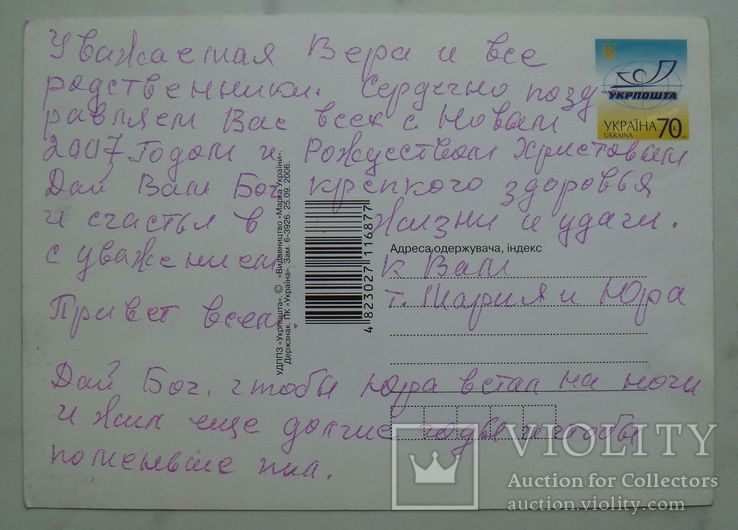 Уважаемая Вера и все
родственники. Сердечно позд-
равляем Вас всех с Новым
2007 Годом и Рождеством Христовым
Дай Вам Бог крепкого здоровья
и счастья в жизни и удачи.
с уважением к Вам
т. Мария и Юра
Привет всем.
Дай Бог. чтобы Юра встал на ноги
и жил еще долгие годы и чтобы
поменьше пил.
УКРПОШТА
УКРАЇНА 70
UKRAINA
Адреса одержувача, індекс
УДППЗ «Укрпошта». © «Видавництво «Марка України».
Держзнак. ПК «Україна». Зам. 6-3926. 25.09.2006.
4 823027 116877
VIOLITY
Auction for Collectors
auction.violity.com